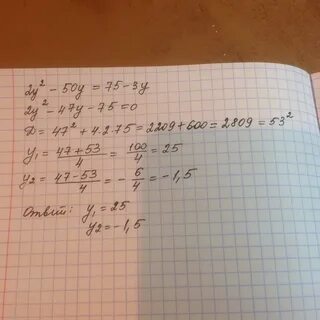 2y² - 50y = 75 - 3y
2y² - 47y - 75 = 0
D = 47² + 4·2·75 = 2209 + 600 = 2809 = 53²
y₁ = (47 + 53)/4 = 100/4 = 25
y₂ = (47 - 53)/4 = -6/4 = -1,5
Ответ: y₁ = 25
y₂ = -1,5